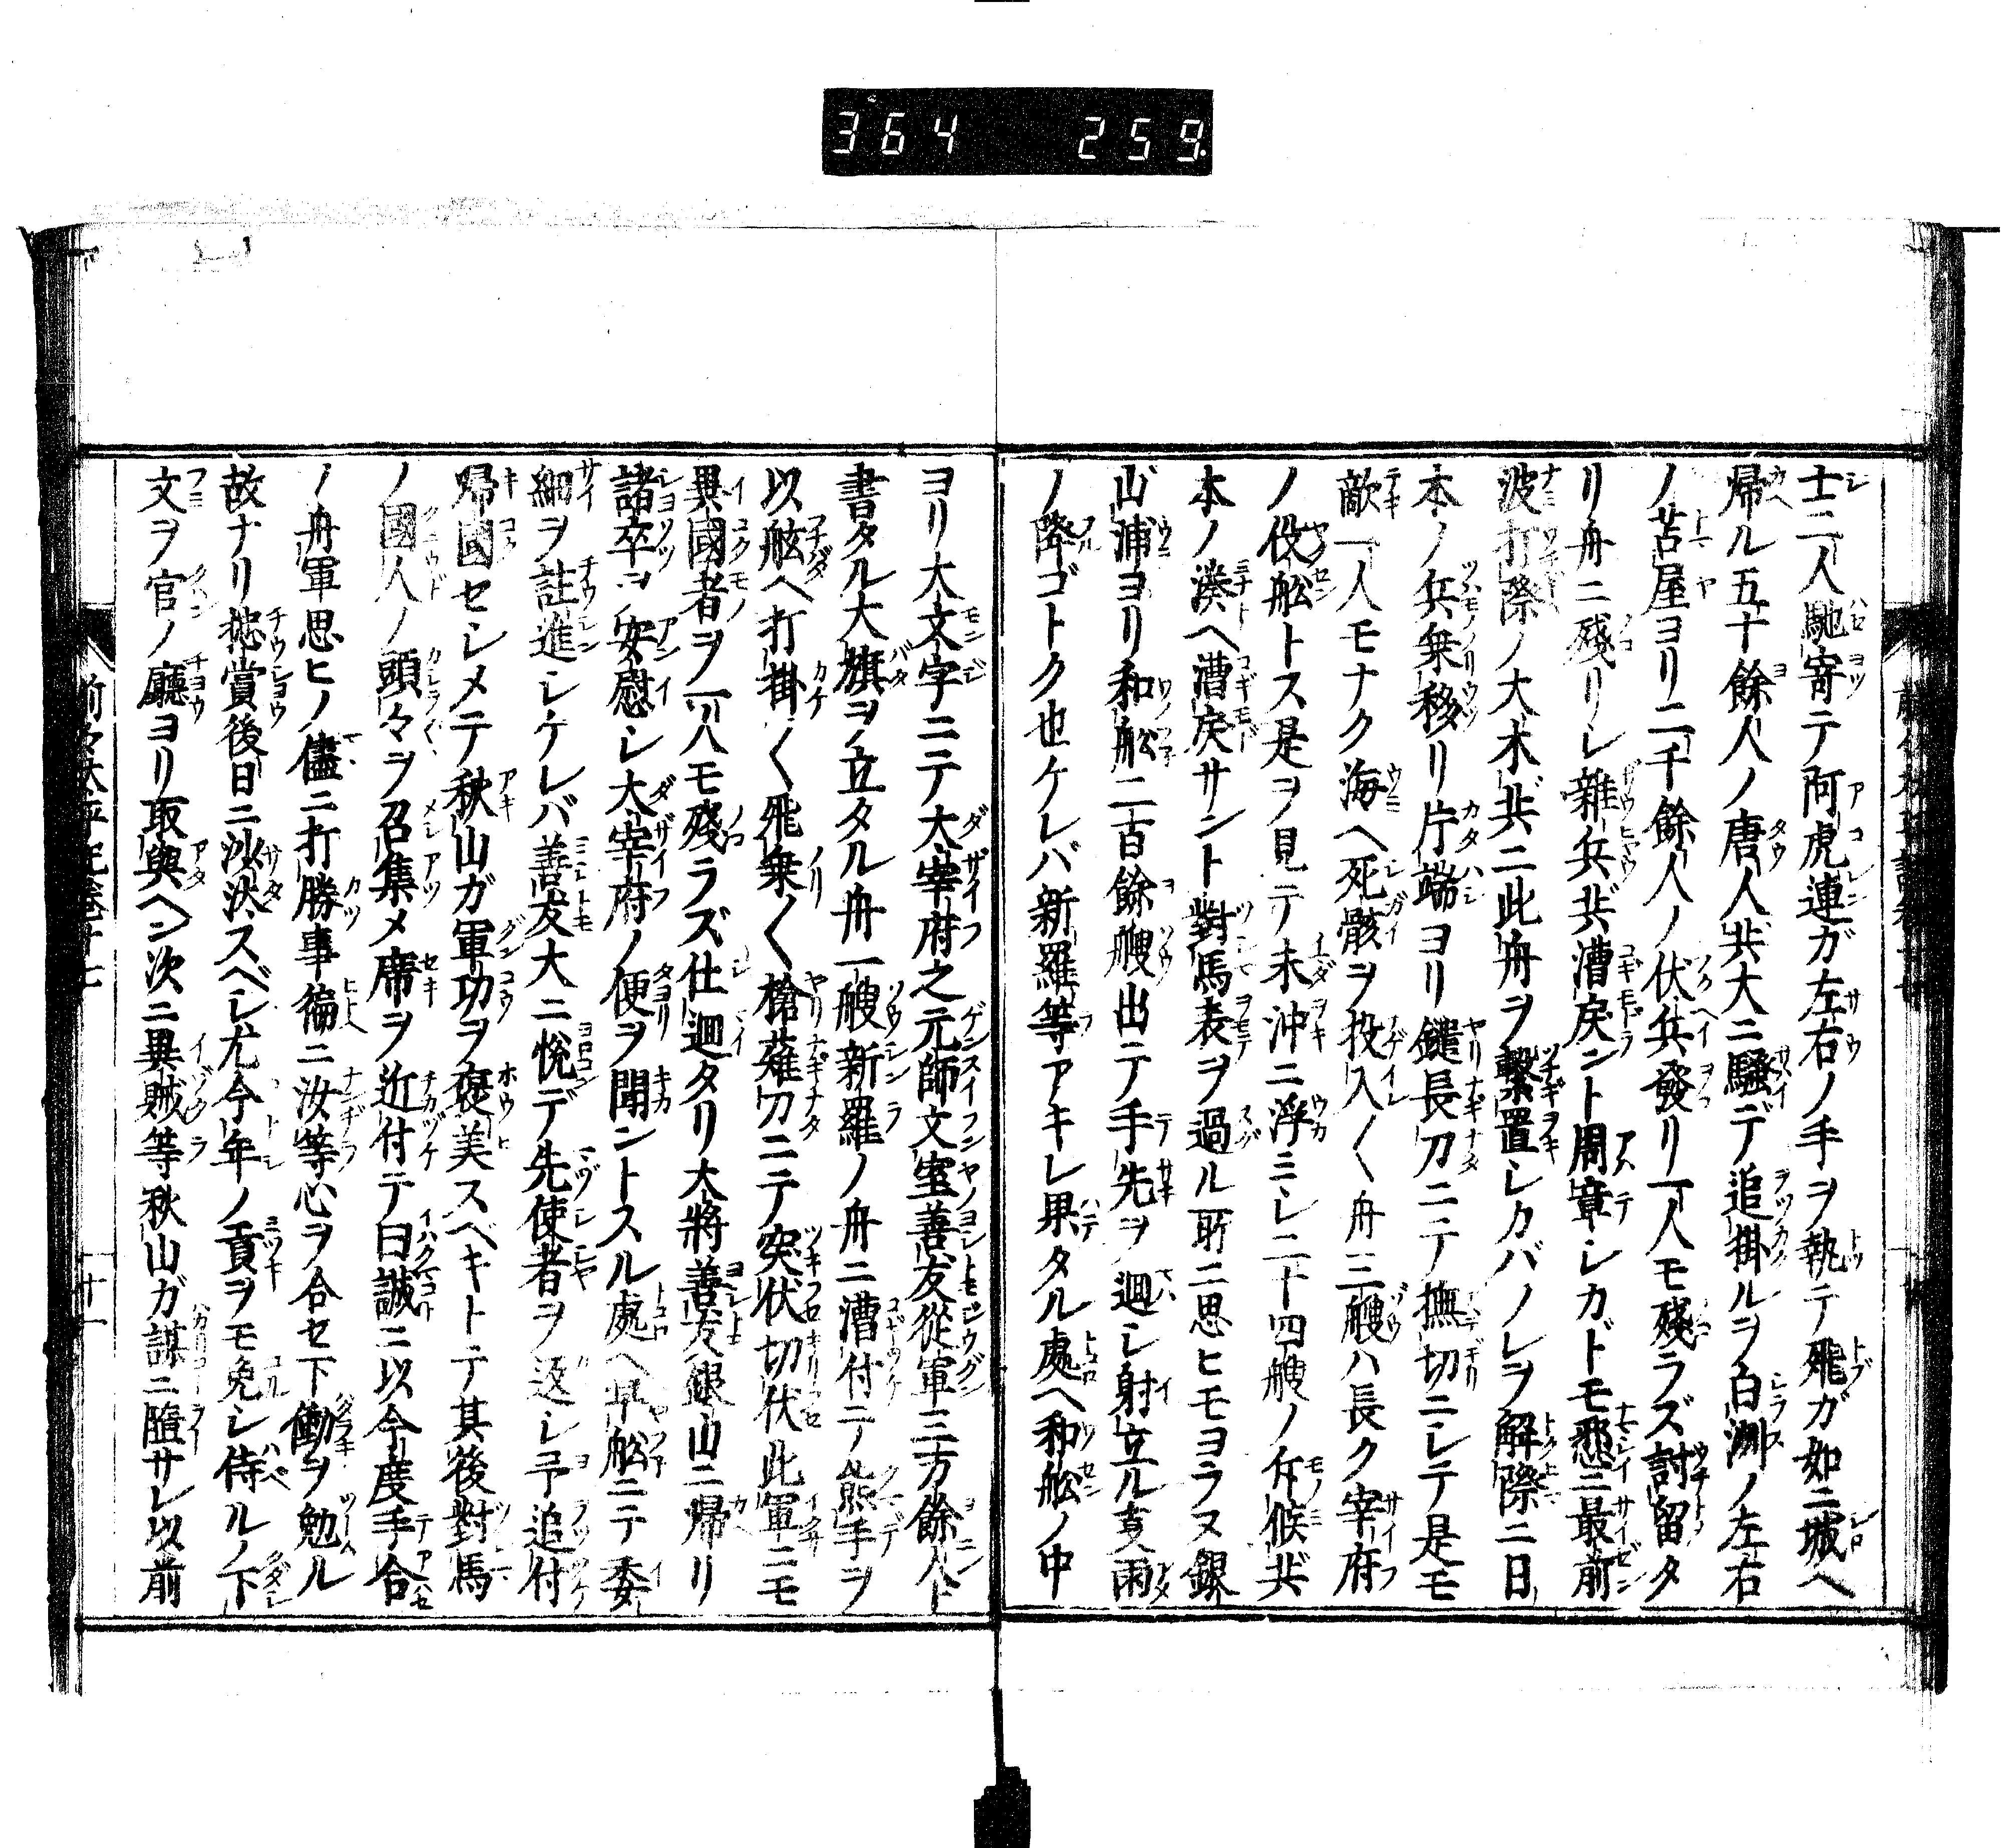 364 259
士二人馳寄テ阿虎連ガ左右ノ手ヲ執テ飛ガ如ニ城ヘ
帰ル五十餘人ノ唐人共大ニ騒デ追掛ルヲ白洲ノ左右
ノ苫屋ヨリ二千餘人ノ伏兵發リ一人モ殘ラズ討留タ
リ舟ニ殘リシ雜兵共漕戻ント周章シカドモ悉ニ最前
波打際ノ大木共ニ此舟ヲ繋置シカバノレヲ解際ニ日
本ノ兵乗移リ片端ヨリ鑓長刀ニテ撫切ニシテ是モ
敵一人モナク海ヘ死骸ヲ投入〱舟三艘ハ長ク宰府
ノ役舩トス是ヲ見テ未沖ニ浮ミシ二十四艘ノ斥候共
本ノ湊ヘ漕戻サント對馬表ヲ過ル所ニ思ヒモヨラヌ銀
山浦ヨリ和舩二百餘艘出テ手先ヲ廻シ射立ル雨
ノ降ゴトク也ケレバ新羅等アキレ果タル處ヘ和舩ノ中
ヨリ大文字ニテ大宰府之元師文室善友從軍三万餘人ト
書タル大旗ヲ立タル舟一艘新羅ノ舟ニ漕付テ熊手ヲ
以舷ヘ打掛〱飛乗〱槍薙刀ニテ突伏切伏此軍ニモ
異國者ヲ一人モ殘ラズ仕廻タリ大將善友銀山ニ帰リ
諸卒ヲ安慰シ大宰府ノ便ヲ聞ントスル處ヘ早舩ニテ委
細ヲ註進シケレバ善友大ニ悦デ先使者ヲ返シ予追付
帰國セシメテ秋山ガ軍功ヲ褒美スベキトテ其後對馬
ノ國人ノ頭々ヲ召集メ席ヲ近付テ曰誠ニ以今度手合
ノ舟軍思ヒノ儘ニ打勝事徧ニ汝等心ヲ合セ下働ヲ勉ル
故ナリ抽賞後日ニ沙汰スベシ尤今年ノ貢ヲモ免シ侍ルノ下
文ヲ官ノ廳ヨリ取與ヘン次ニ異賊等秋山ガ謀ニ隨サレ以前
十一